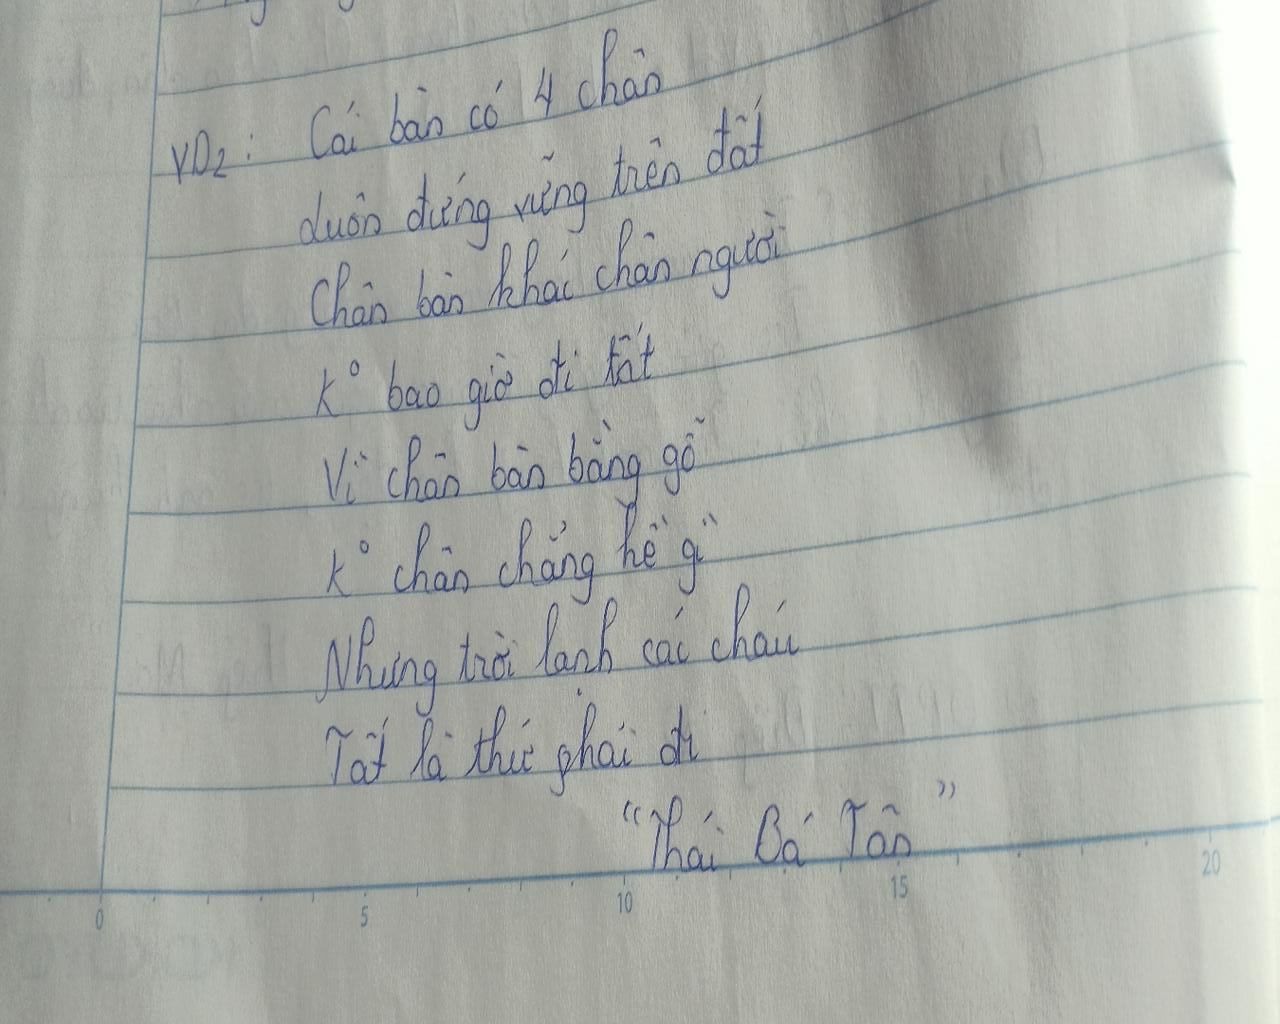 VD2: Cái bàn có 4 chân
Luôn đứng vững trên đất
Chân bàn khác chân người
K° bao giờ đi tất
Vì chân bàn bằng gỗ
K° chân chẳng hề gì
Nhưng trời lạnh các cháu
Tất là thứ phải đi
"Thái Bá Tân"
0 5 10 15 20